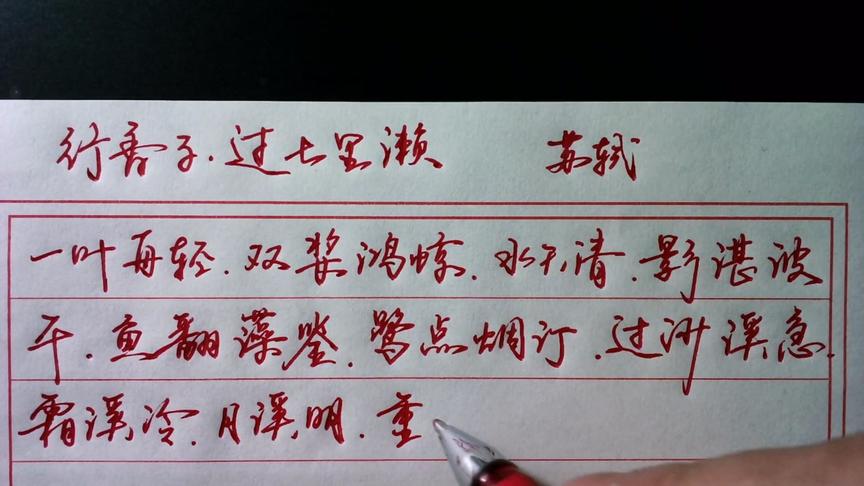 行香子.过七里濑 苏轼
一叶舟轻.双桨鸿惊.水天清.影湛波
平.鱼翻藻鉴.鹭点烟汀.过沙溪急.
霜溪冷.月溪明.重